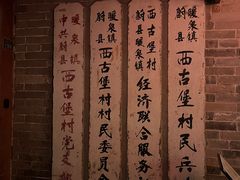 中共蔚县
暖泉镇
西古堡村党支部
蔚县
暖泉镇
西古堡村民委员会
蔚县
暖泉镇
西古堡村
经济联合服务
蔚县
暖泉镇
西古堡村民兵